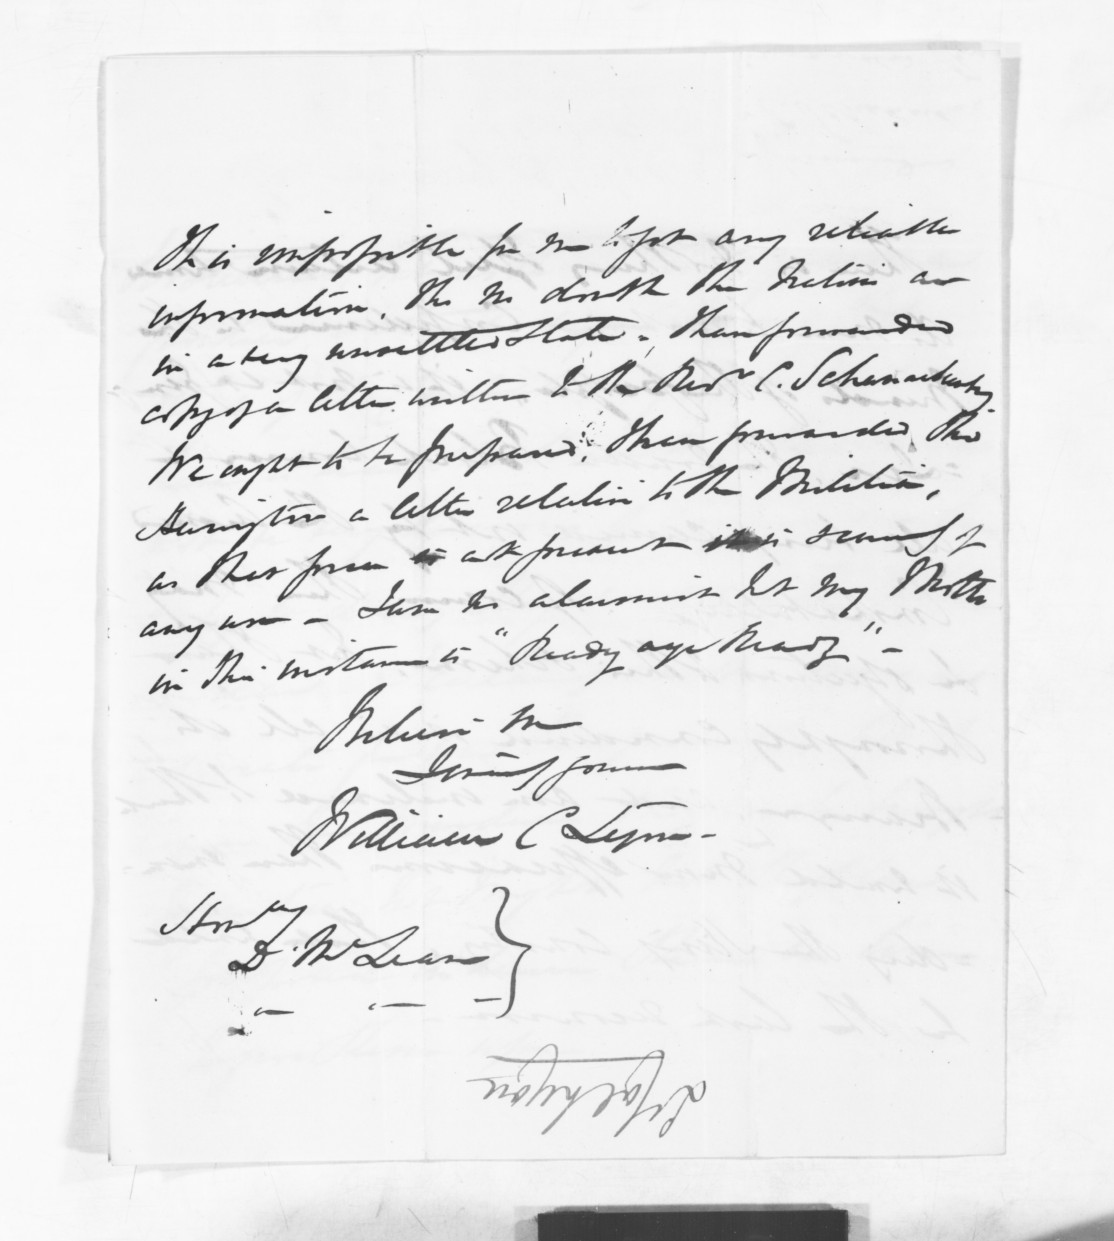 It is impossible for me to get any reliable
information, tho no doubt the Natives are
in a very unsettled State, I have forwarded
copy of a letter written to the Revr C. Schnackenberg
We ought to be prepared, I have forwarded this
a letter relative to the Militia,
as that force is at present is scarcely of
any use – I am no alarmist but my Motto
in this instance is "Ready aye Ready" –
Believe me
Yours
William C Lyon –
Honble
D. McLean
Halkyon